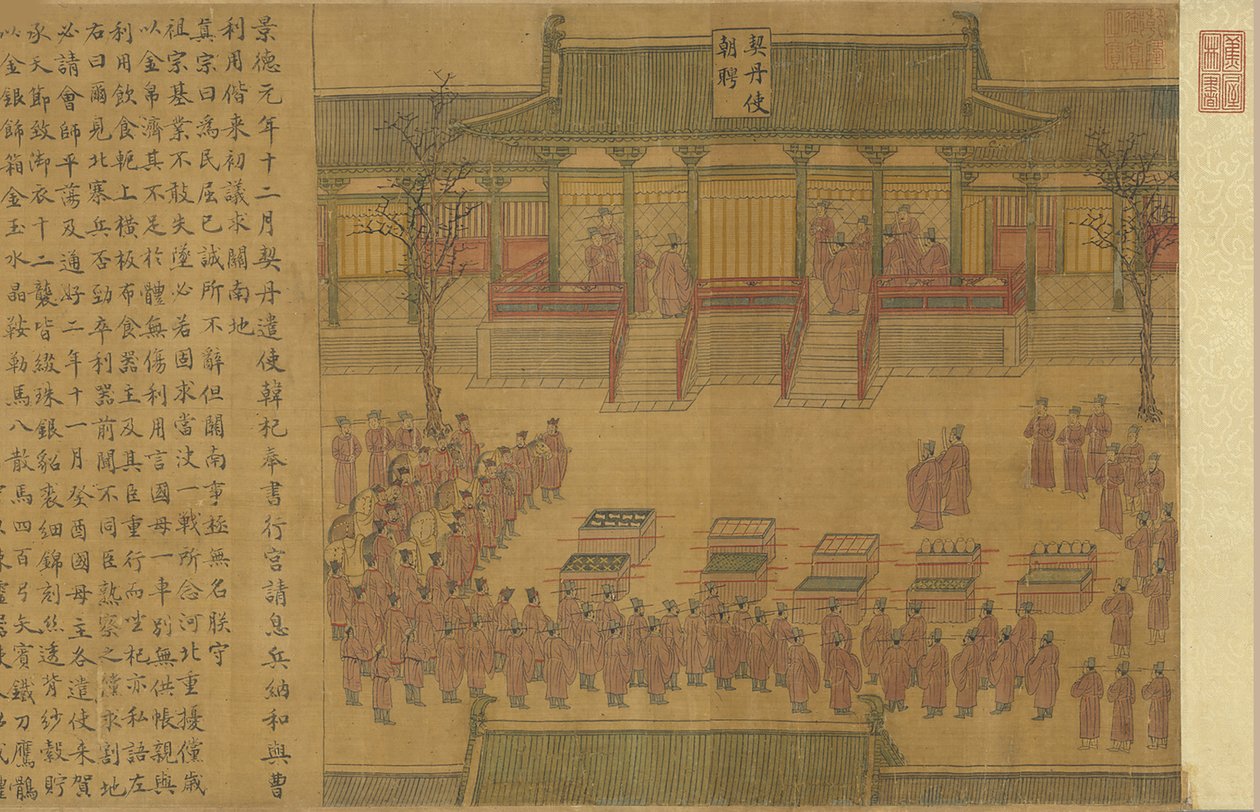 契丹使
朝聘
景德元年十二月契丹遣使韓杞奉書行宮請息兵納和與曹
利用偕來初議求關南地
眞宗曰爲民屈己誠所不辭但關南事極無名朕守
祖宗基業不敢失墜必若固求當決一戰所念河北重擾儻歲
以金帛濟其不足於體無傷利用言國母一車別無供帳親與
利用飲食軛上橫板布食器主及其臣重行而坐杞亦私語左
右曰爾見北寨兵否勁卒利器前聞不同臣熟察之儻求割地
必請會師平蕩及通好二年十一月癸酉國母主各遣使來賀
承天節致御衣十二襲皆綴珠銀貂裘細錦刻絲透背紗縠貯
以金銀飾箱金玉水晶鞍勒馬八散馬四百弓矢賓鐵刀鷹鶻